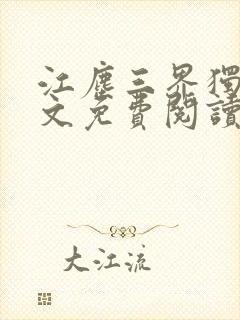 江塵三界獨
文免費閱讀
大江流